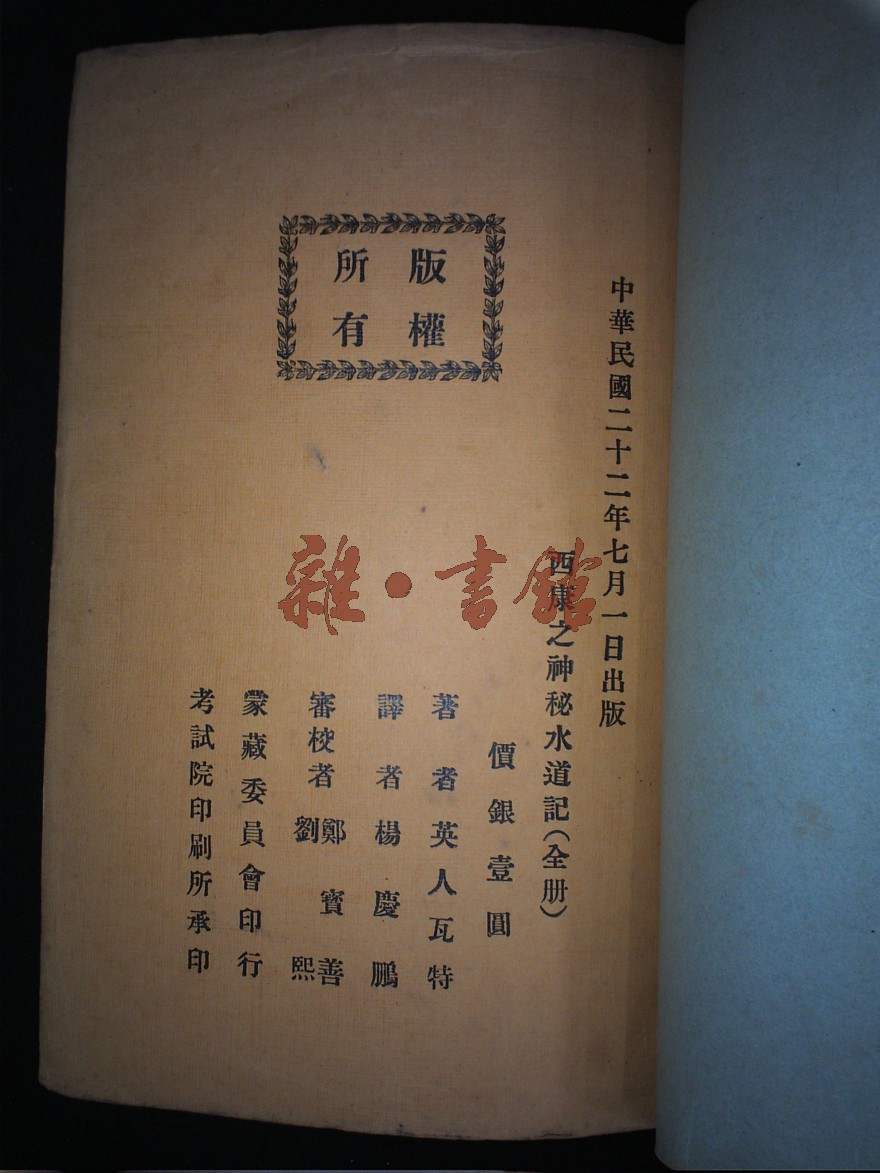 中華民國二十二年七月一日出版
西康之神秘水道記(全册)
價銀壹圓
著者英人瓦特
譯者楊慶鵬
審校者鄭寶善
劉熙
蒙藏委員會印行
考試院印刷所承印
版權
所有
雜·書館